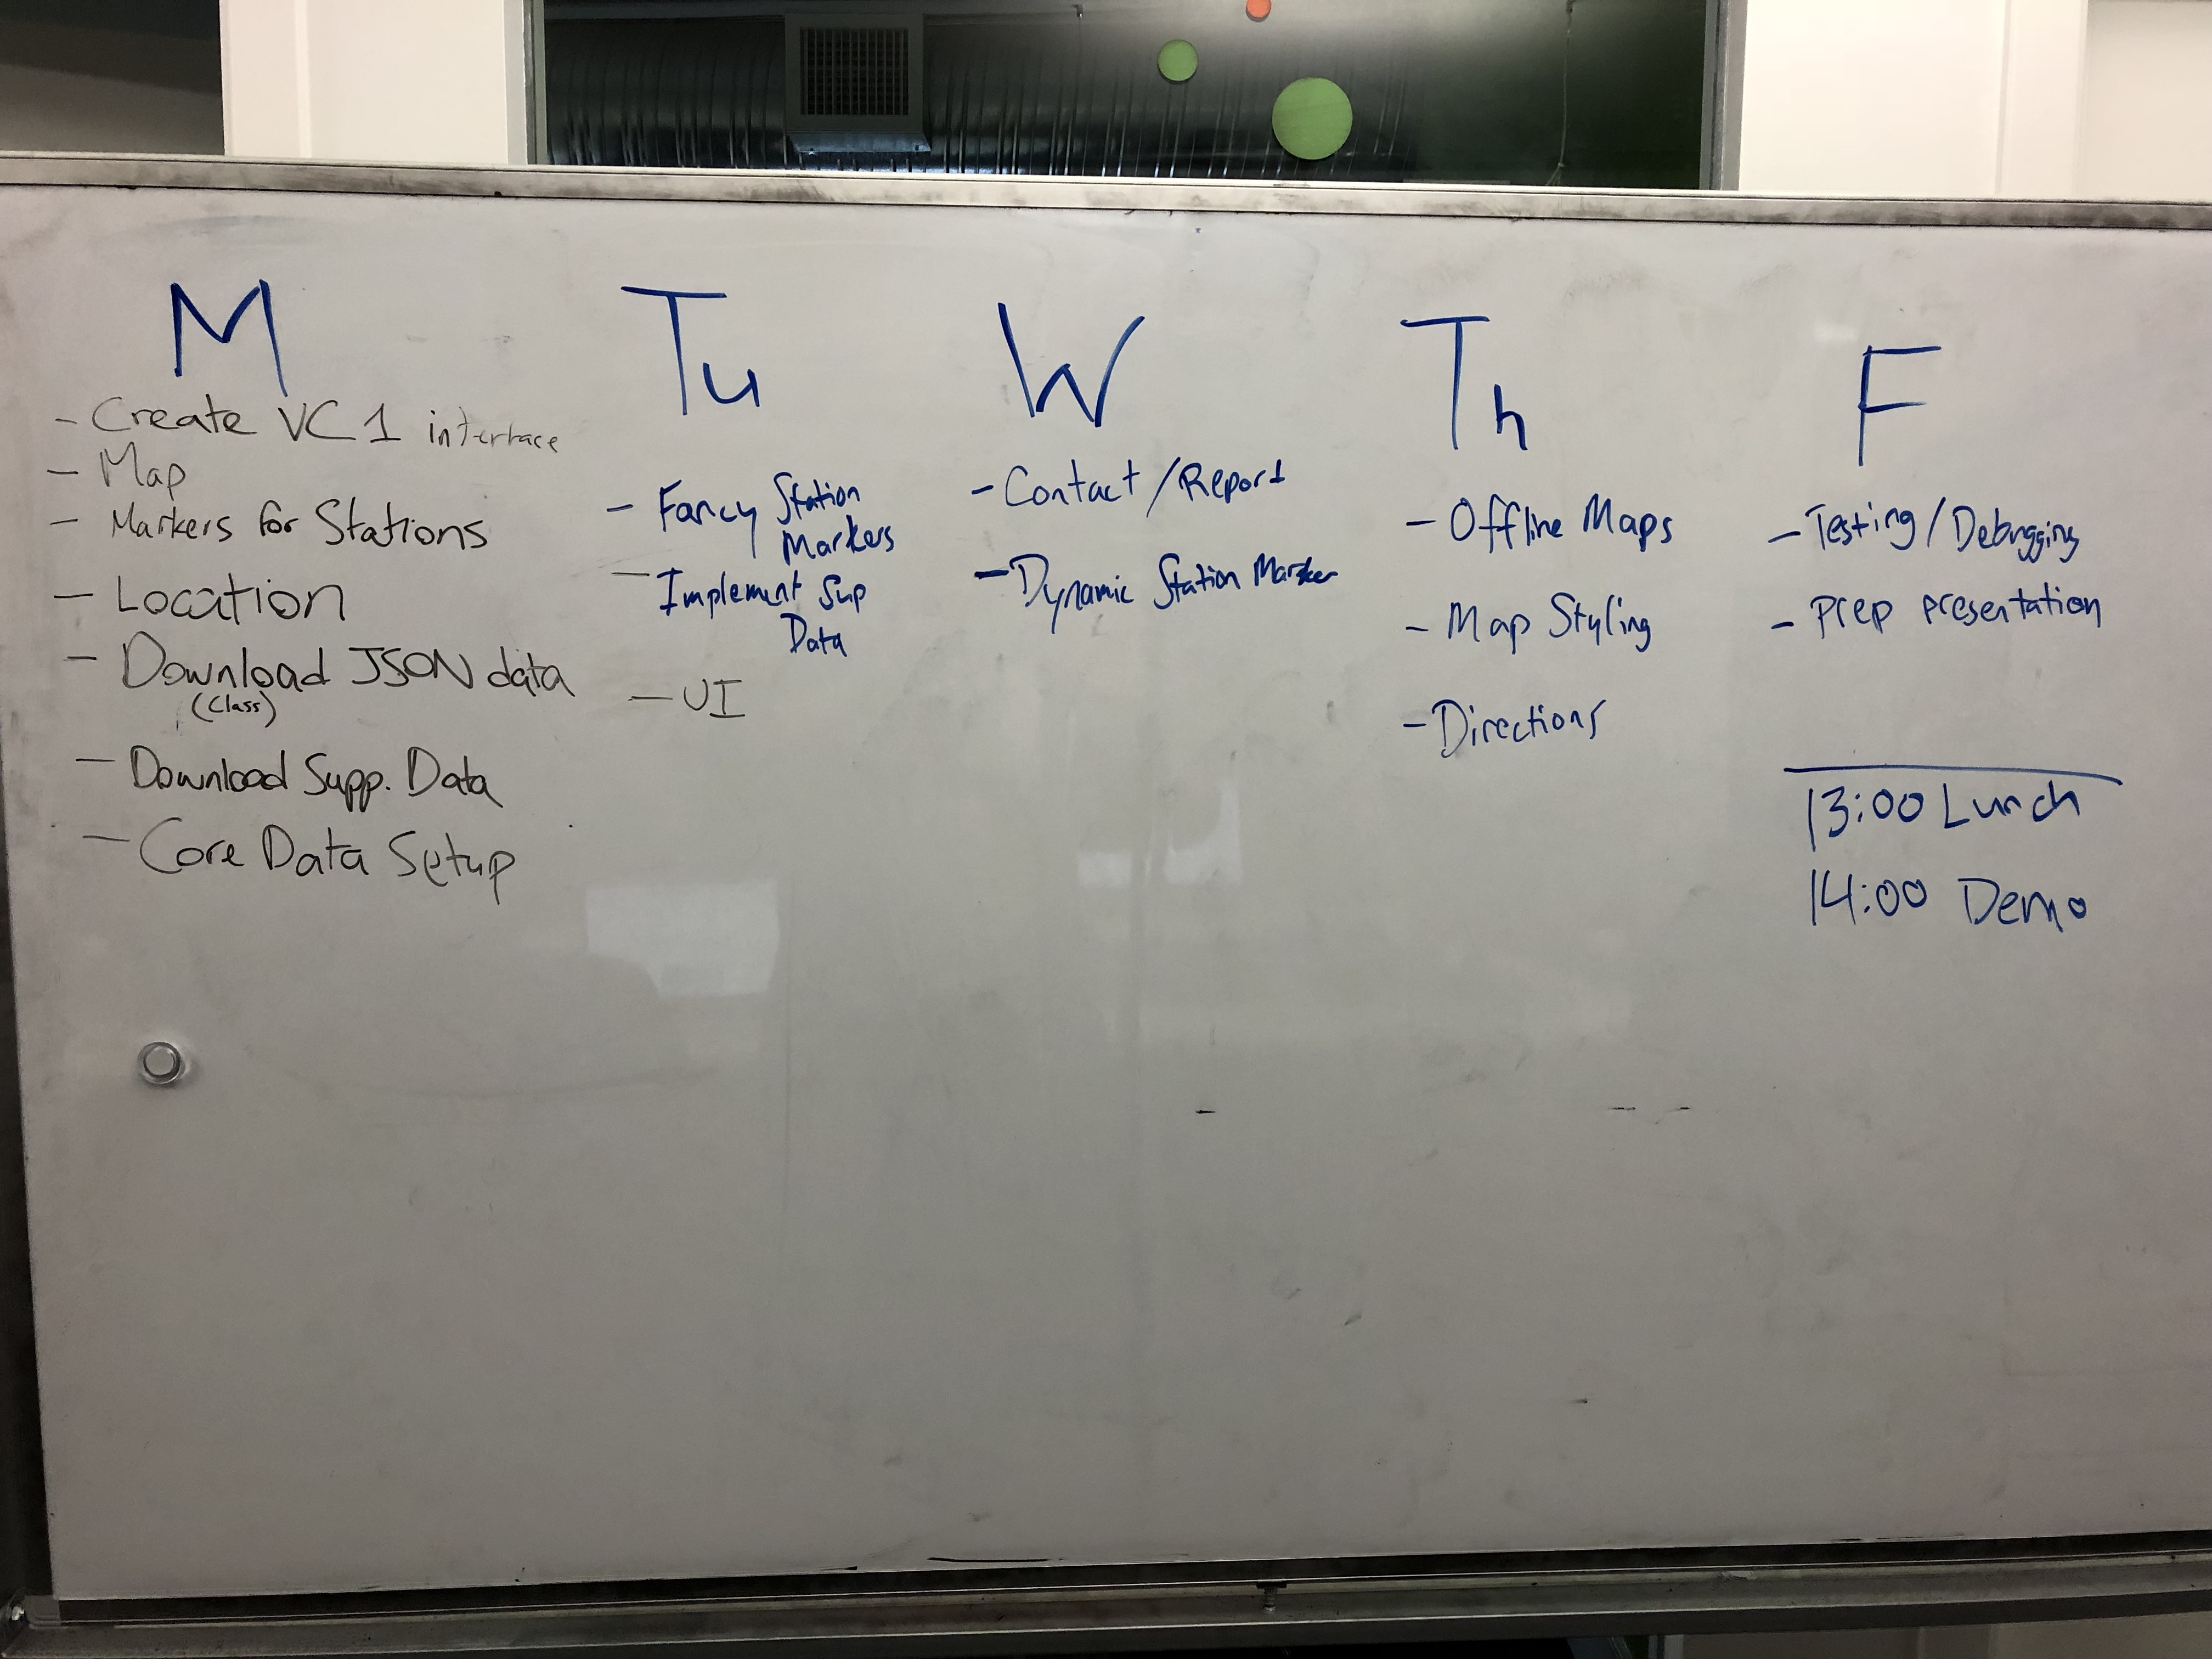 M
- Create VC1 interface
- Map
- Markers for Stations
- Location
- Download JSON data
(Class)
- Download Supp. Data
- Core Data Setup
Tu
- Fancy Station
Markers
- Implement Sup
Data
- UI
W
- Contact/Report
- Dynamic Station Marker
Th
- Offline Maps
- Map Styling
- Directions
F
- Testing/Debugging
- Prep presentation
13:00 Lunch
14:00 Demo